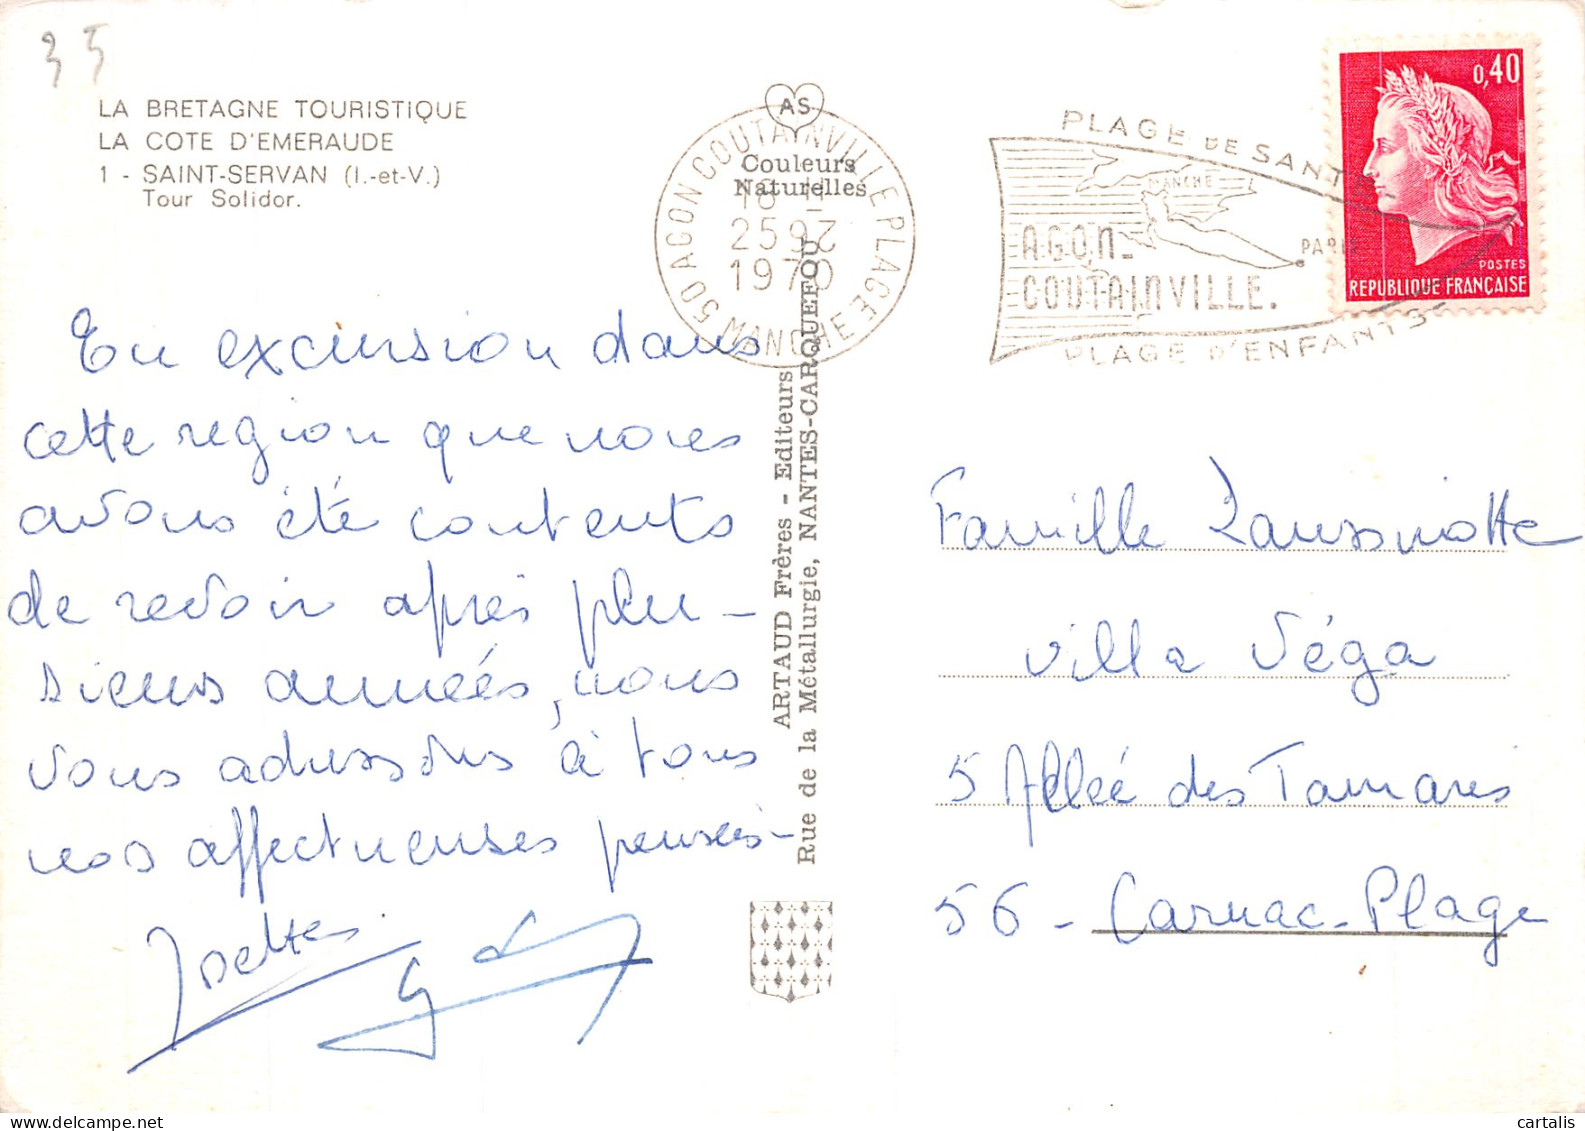 35
LA BRETAGNE TOURISTIQUE
LA COTE D'EMERAUDE
1 - SAINT-SERVAN (I.-et-V.)
Tour Solidor.
En excursion dans
cette region que nous
avons été contents
de revoir après plu-
sieurs années, nous
vous adressons à tous
nos affectueuses pensées-
Josette
AS
Couleurs
Naturelles
50 AGON COUTAINVILLE PLAGE
MANCHE
1970
ARTAUD Frères - Editeurs
Rue de la Métallurgie, NANTES-CARQUEFOU
PLAGE DE SANT
MANCHE
PARIS
AGON-
COUTAINVILLE.
PLAGE D'ENFANTS
0,40
POSTES
REPUBLIQUE FRANÇAISE
Famille
Villa Véga
5 Allée des Tamaris
56 - Carnac-Plage
cartalis